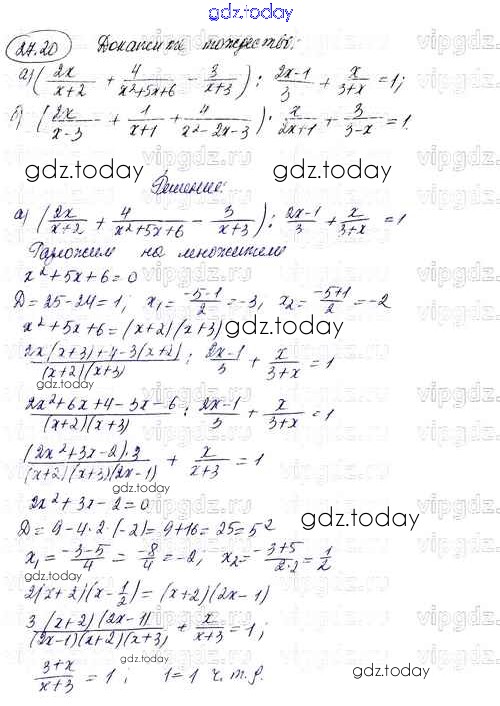 gdz.today
27.20 Докажите тождество:
а) (2x/(x+2) + 4/(x²+5x+6) - 3/(x+3)) : (2x-1)/3 + x/(3+x) = 1;
б) (2x/(x-3) + 1/(x+1) + 4/(x²-2x-3)) : x/(2x+1) + 3/(3-x) = 1.
gdz.today gdz.today
Решение:
а) (2x/(x+2) + 4/(x²+5x+6) - 3/(x+3)) : (2x-1)/3 + x/(3+x) = 1
Разложим на множители
x²+5x+6=0
D=25-24=1; x₁=(-5-1)/2=-3, x₂=(-5+1)/2=-2
x²+5x+6=(x+2)(x+3)
gdz.today
(2x(x+3)+4-3(x+2))/((x+2)(x+3)) : (2x-1)/3 + x/(3+x) = 1
(2x²+6x+4-3x-6)/((x+2)(x+3)) : (2x-1)/3 + x/(3+x) = 1
((2x²+3x-2)·3)/((x+2)(x+3)(2x-1)) + x/(x+3) = 1
2x²+3x-2=0
D=9-4·2·(-2)=9+16=25=5²
gdz.today
x₁=(-3-5)/4=-8/4=-2; x₂=(-3+5)/(2·2)=1/2
gdz.today
2(x+2)(x-1/2)=(x+2)(2x-1)
(3(x+2)(2x-1))/((2x-1)(x+2)(x+3)) + x/(x+3) = 1;
gdz.today
(3+x)/(x+3) = 1; 1=1 ч.т.д.
gdz.today